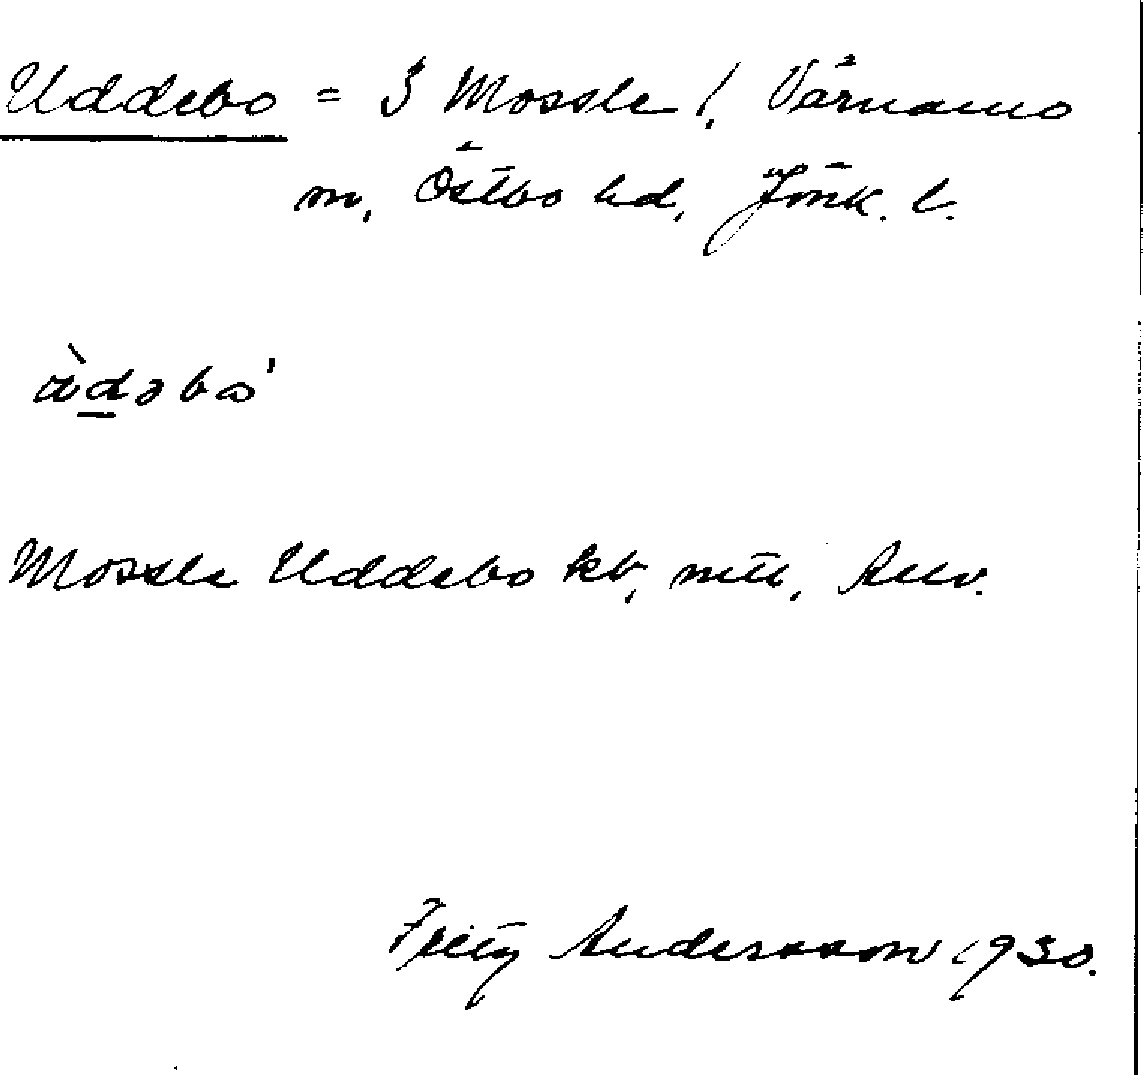 Uddebo = 3 Mossle /, Värnamo
m, Östbo hd, Jönk. l.
ùdəbo'
Mossle Uddebo kt, mtl,
Andersson 1930.